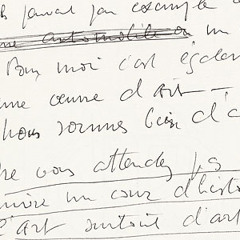 par exemple
une automobile ou un
Pour moi c'est égalem
une œuvre d'art —
nous sommes bien d'a
Ne vous attendez pas
uivre un cour d'histo
l'art surtout d'art